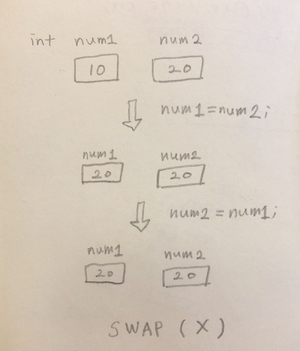 int num1 num2
10 20
num1=num2;
num1 num2
20 20
num2=num1;
num1 num2
20 20
SWAP (X)